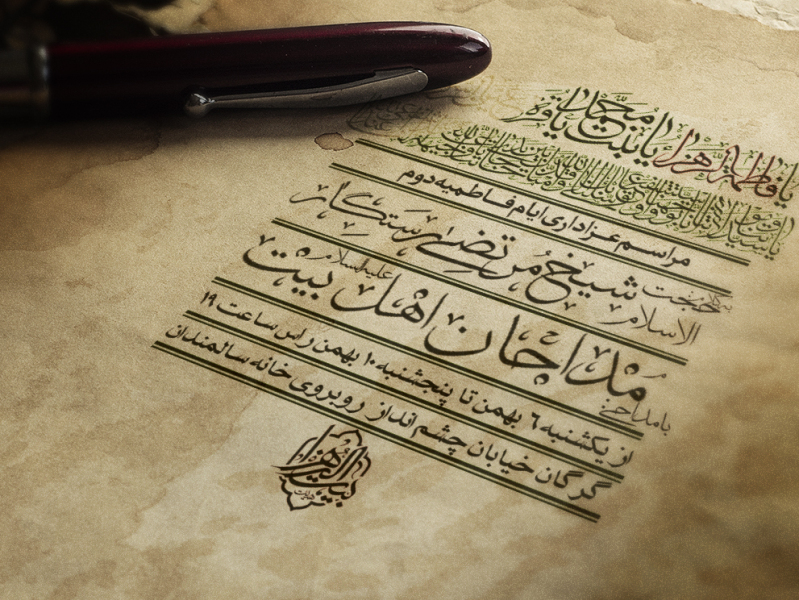 یا فاطمة الزهرا یا بنت محمد یا قرة
مراسم عزاداری ایام فاطمیه دوم
حجت الاسلام شیخ مرتضی رستگار
با مداحی مداحان اهل بیت علیه‌السلام
از یکشنبه ۶ بهمن تا پنجشنبه ۱۰ بهمن راس ساعت ۱۹
گرگان خیابان چشم انداز روبروی خانه سالمندان
بیت الزهرا